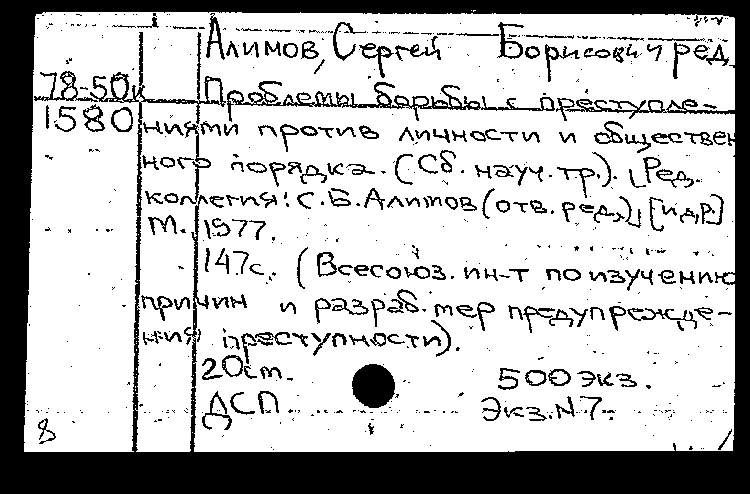 Алимов, Сергей Борисович ред.
78-50к Проблемы борьбы с преступле-
1580 ниями против личности и обществен
ного порядка. (Сб. науч. тр.). [Ред.
коллегия: С.Б. Алимов (отв. ред.)], [и др.]
М., 1977.
147с. (Всесоюз. ин-т по изучению
причин и разраб. мер предупрежде-
ния преступности).
20см. 500 экз.
ДСП Экз. N 7.
8